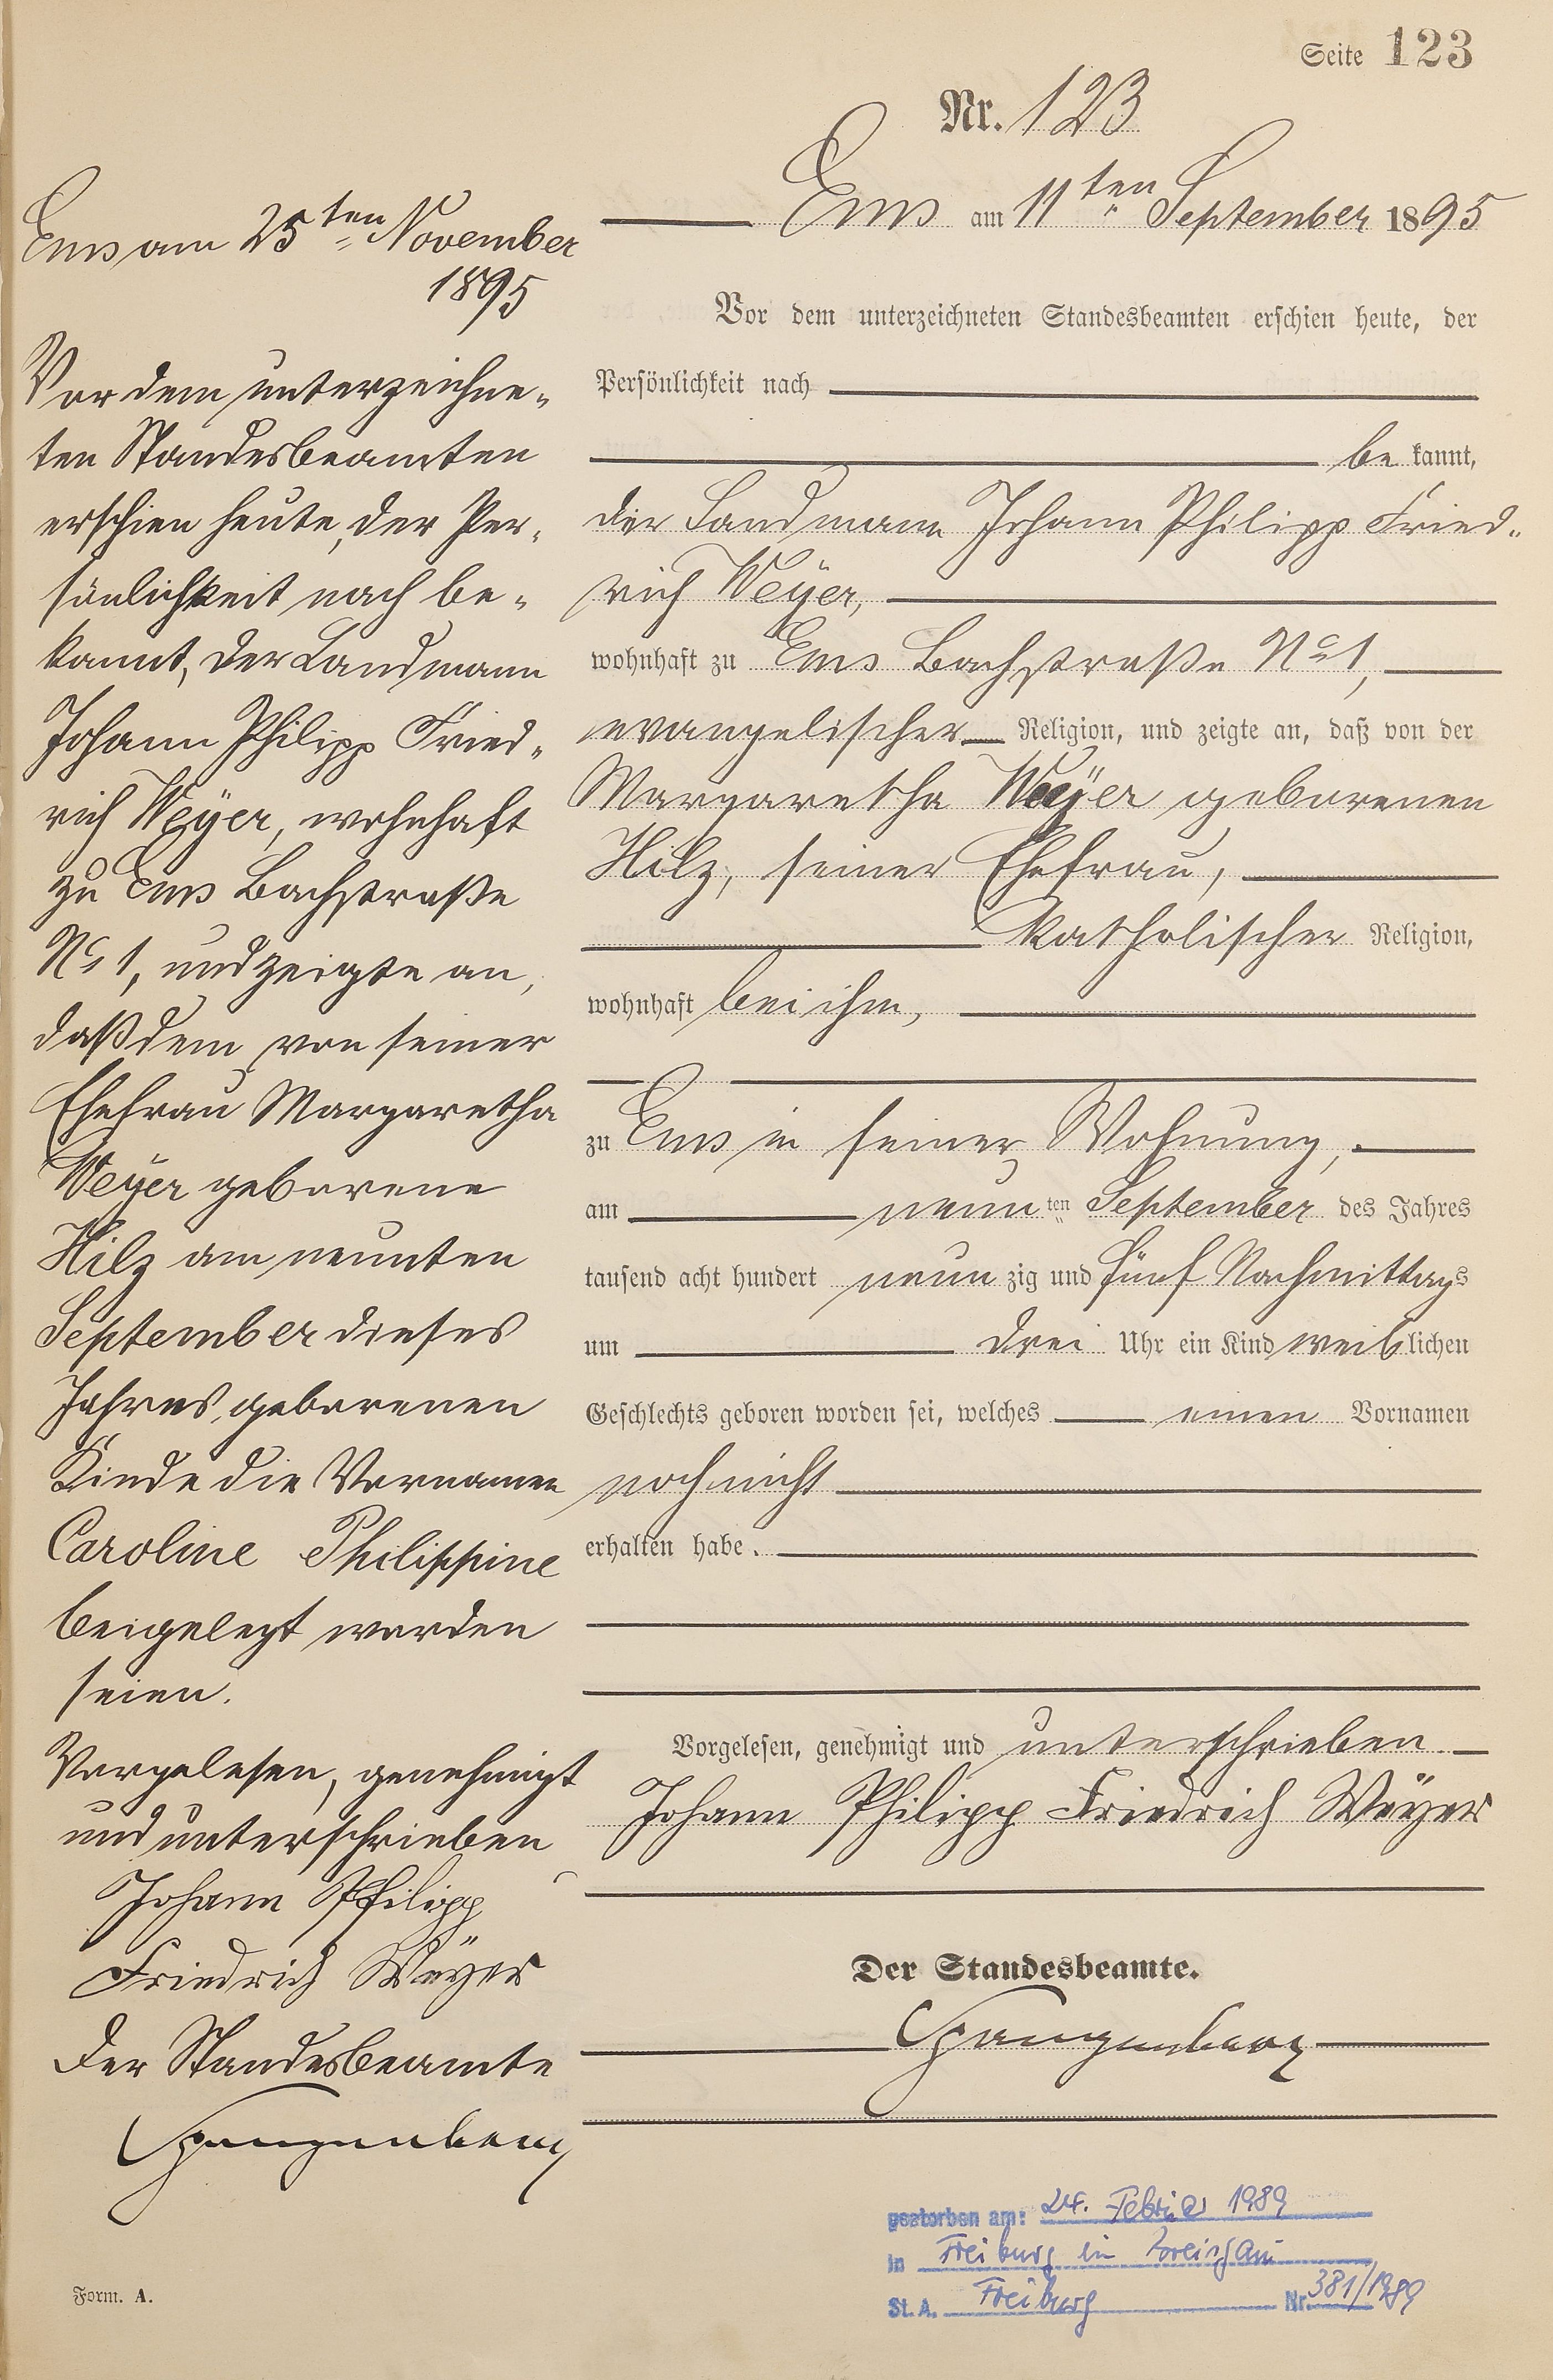 Seite 123
Nr. 123
Ems am 11ten September 1895
Vor dem unterzeichneten Standesbeamten erschien heute, der
Persönlichkeit nach
be kannt,
der Landmann Johann Philipp Fried-
rich Weÿer,
wohnhaft zu Ems Bachstraße No 1,
evangelischer Religion, und zeigte an, daß von der
Margaretha Weÿer geborenen
Hilz, seiner Ehefrau,
katholischer Religion,
wohnhaft bei ihm,
zu Ems in seiner Wohnung,
am neun ten September des Jahres
tausend acht hundert neun zig und fünf Nachmittags
um drei Uhr ein Kind weiblichen
Geschlechts geboren worden sei, welches einen Vornamen
noch nicht
erhalten habe.
Vorgelesen, genehmigt und unterschrieben
Johann Philipp Friedrich Weÿer
Der Standesbeamte.
Spangenberg
Ems am 25ten November
1895
Vor dem unterzeichne-
ten Standesbeamten
erschien heute, der Per-
sönlichkeit nach be-
kannt, der Landmann
Johann Philipp Fried-
rich Weÿer, wohnhaft
zu Ems Bachstraße
No 1, und zeigte an,
daß dem von seiner
Ehefrau Margaretha
Weÿer geborene
Hilz am neunten
September dieses
Jahres, geborenen
Kinde die Vornamen
Caroline Philippine
beigelegt worden
seien.
Vorgelesen, genehmigt
und unterschrieben
Johann Philipp
Friedrich Weÿer
Der Standesbeamte
Spangenberg
gestorben am: 24. Februar 1989
in Freiburg im Breisgau
St. A. Freiburg Nr. 381/1989
Form. A.